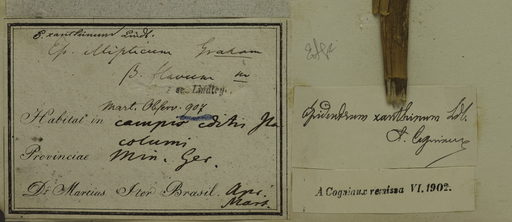 E xanthinum Lindl.
Ep. ellipticum Graham
β. flavum m
Lindley.
Mart. Observ. 907
Habitat in campis editis
Provinciae Min. Ger.
Dr Martius Iter Brasil. Apr.
Mart.
Epidendrum xanthinum Ldl.
A. Cogniaux
A Cogniaux remissa VI. 1902.